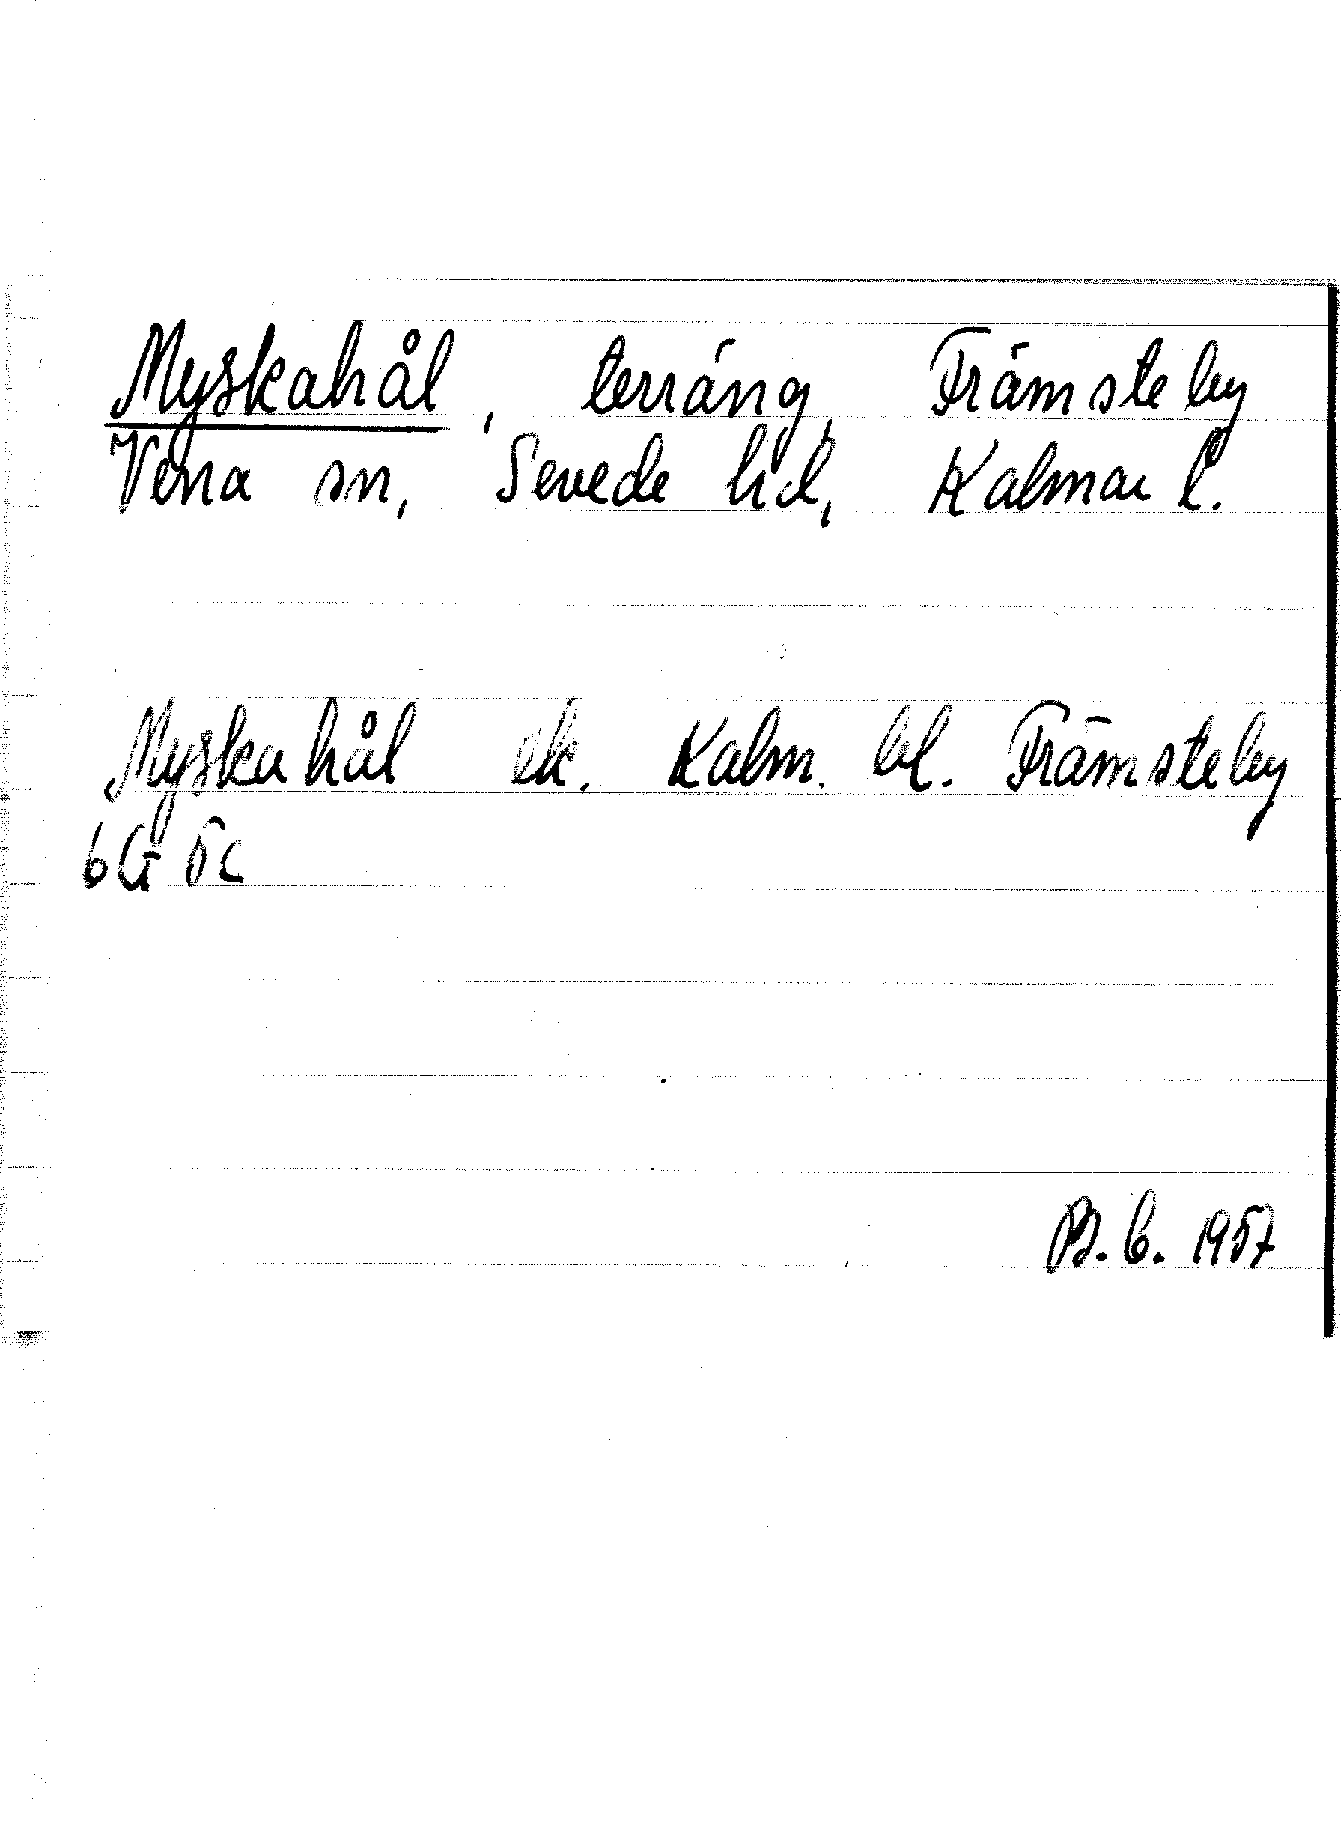 Myskahål, terräng, Främsteby
Vena sn, Sevede hd, Kalmar l.
Myskahål ek. Kalm. bl. Främsteby
6G 5c
B. C. 1957